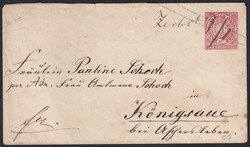 Zerbst 7/11
Fräulein Pauline Schoch
per Adr. Frau Amtmann Schoch
in
Königsaue
bei Aschersleben